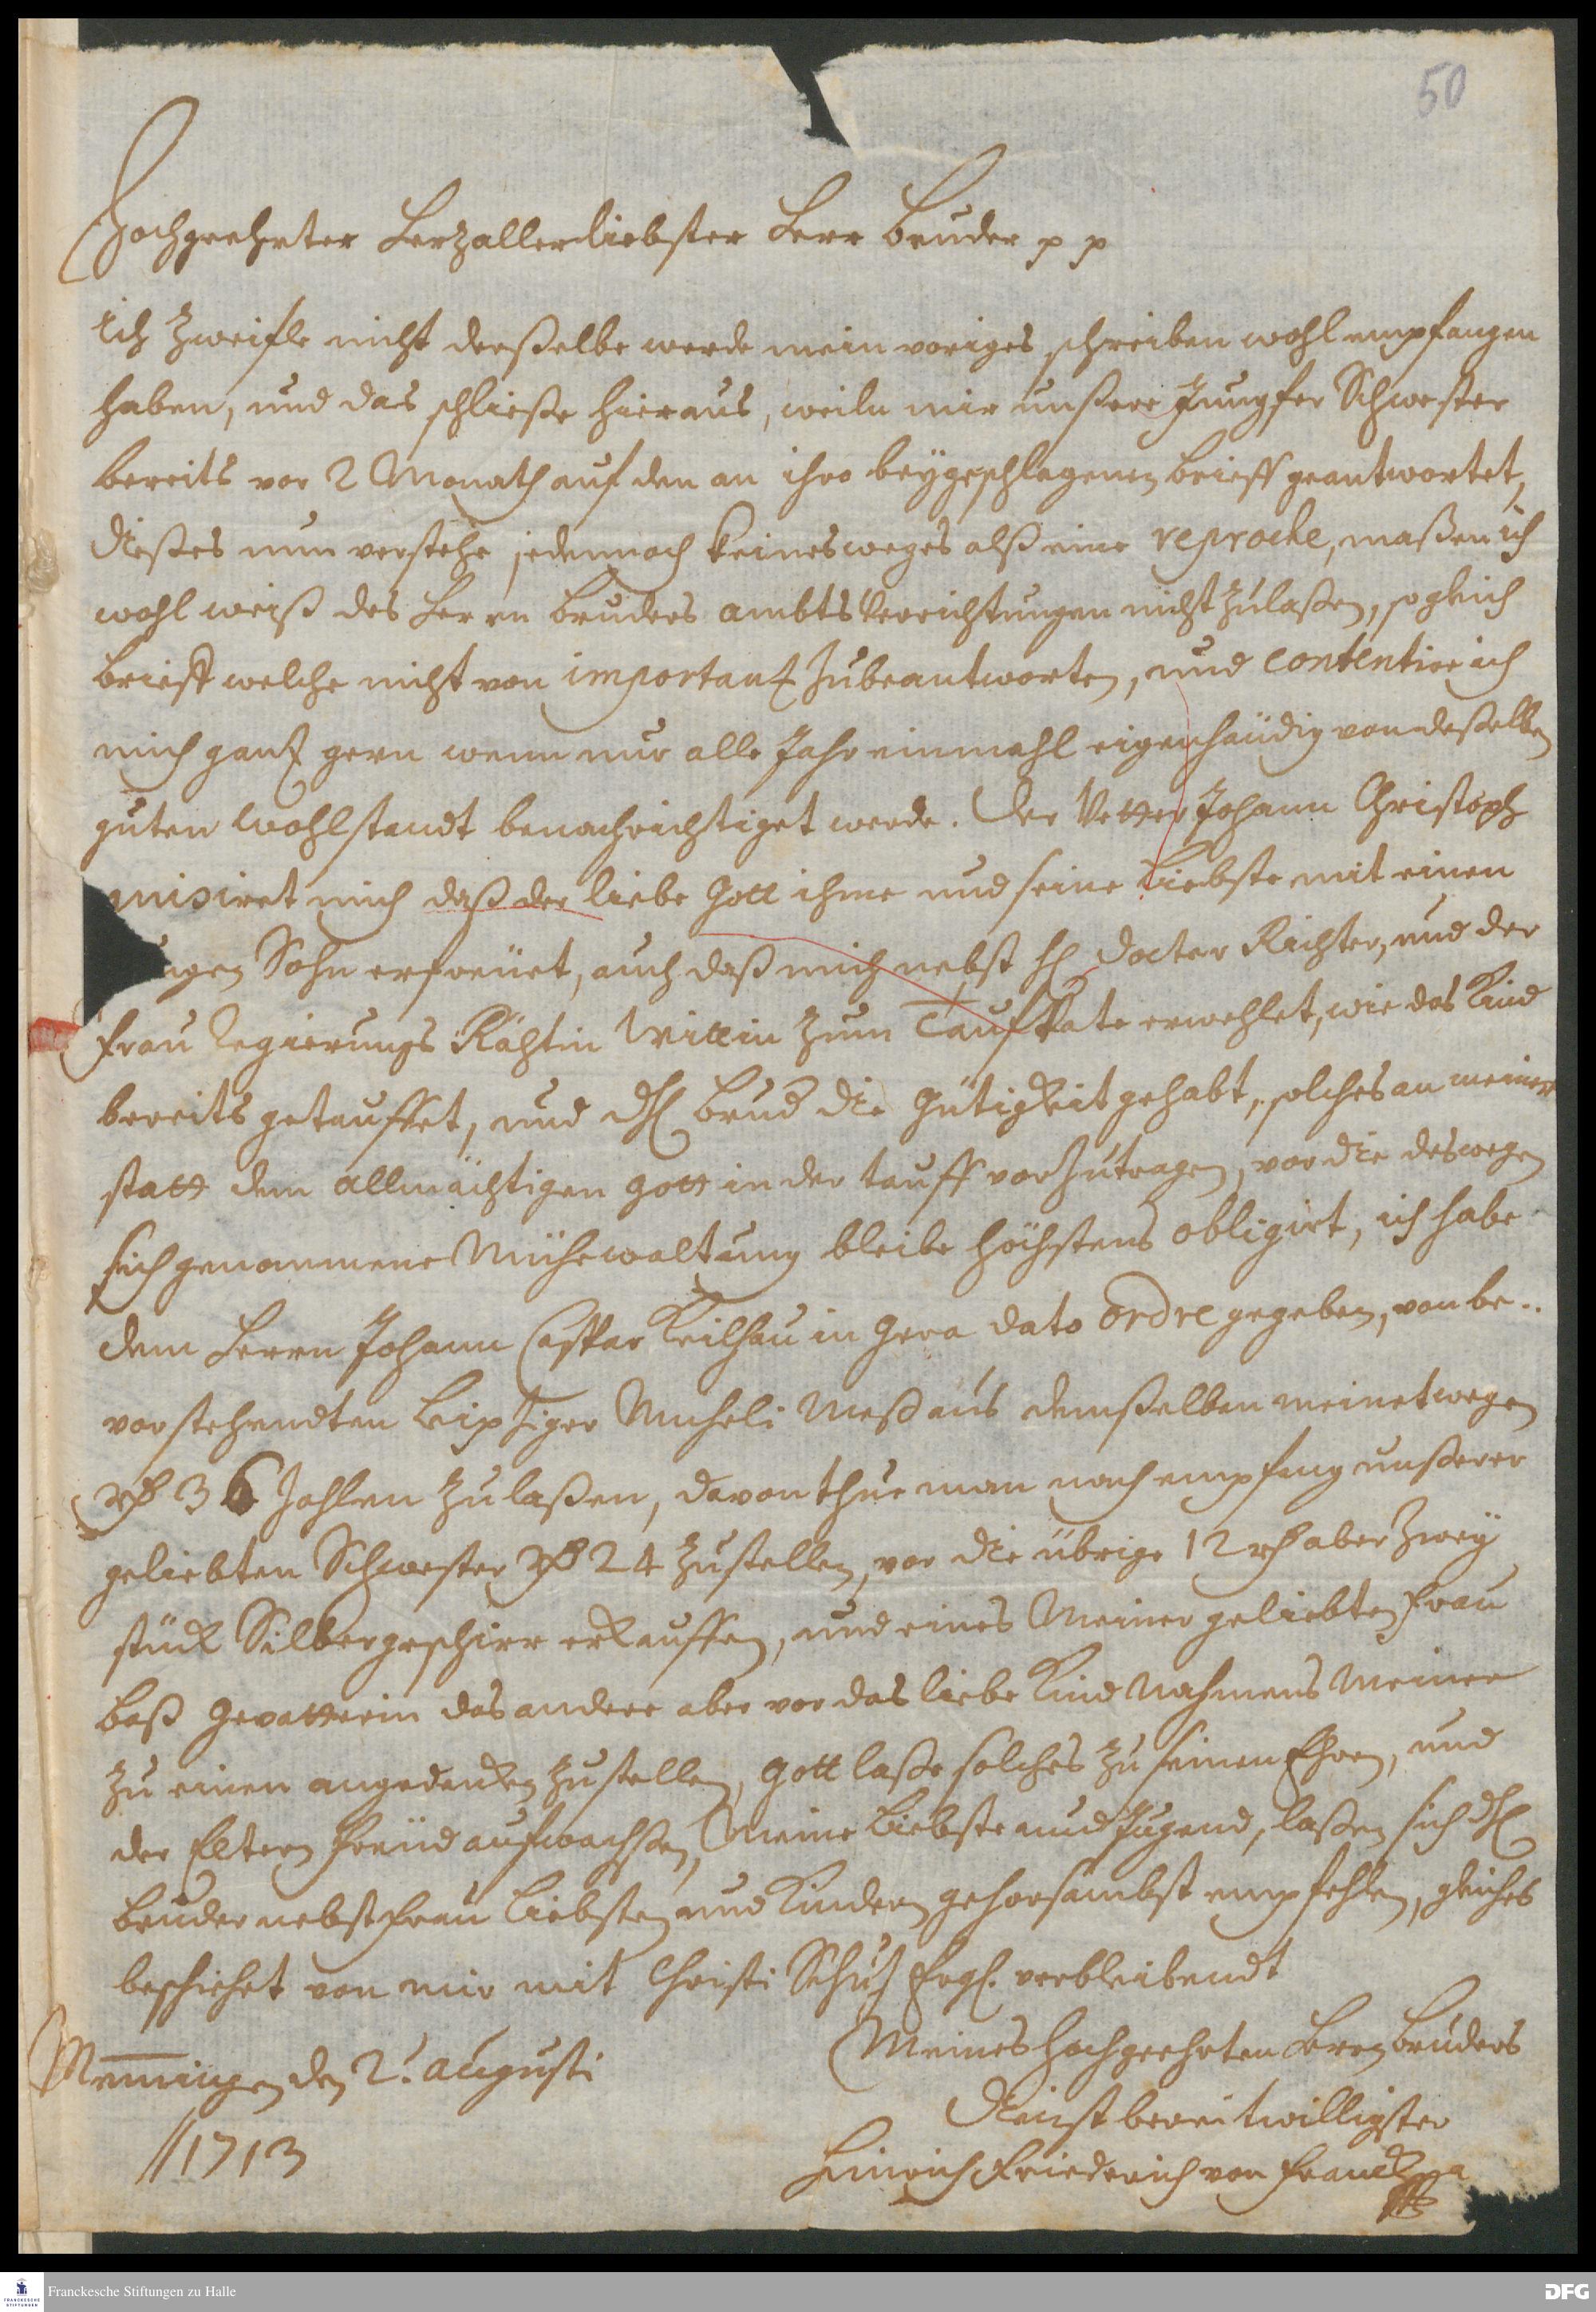 50
Hochgeehrter Herzallerliebster Herr Bruder p p
Ich zweifle nicht derßelbe werde mein voriges schreiben wohl empfangen
haben, und das schließe hieraus, weiln mir unßere Jungfer Schwester
bereits vor 2 Monath auf den an ihro beygeschlagenen brieff geantwortet,
dießes nun verstehe jedennoch keinesweges alß eine reproche, maßen ich
wohl weiß des Herrn Bruders ambts Verrichtungen nicht zulaßen, sogleich
brieff welche nicht von importanz zubeantworten, und contentire ich
mich ganz gern wenn nur alle Jahr einmahl eigenhändig von deßelben
guten wohlstandt benachrichtiget werde. Der Vetter Johann Christoph
misiret mich daß der liebe Gott ihme und seine Liebste mit einen
ungen Sohn erfreuet, auch daß mich nebst H. Docter Richter, und der
Frau Regierungs Räthin Wittin zum Tauffpate erwehlet, wie das Kind
bereits getauffet, und dH. Brud die Gütigkeit gehabt, solches an meiner
statt dem Allmächtigen Gott in der tauff vorzutragen, vor die deswegen
sich genommene Mühewaltung bleibe höchstens obligirt, ich habe
dem Herrn Johann Caspar Keilhau in Gera dato ordre gegeben, von be-
vorstehendten Leipziger Micheli Meß aus demßelben meinetwegen
rth 36 zahlen zulaßen, davon thue man nach empfang unßerer
geliebten Schwester rth 24 zustellen, vor die übrige 12 rth aber zwey
stück Silbergeschirr erkauffen, und eines Meiner geliebten Frau
Baß Gevatterin das andere aber vor das liebe Kind Nahmens Meiner
zu einen angedencken zustellen, Gott laße solches zu seinen Ehren, und
der Eltern Freud aufwachßen, Meine Liebste und Jugend, laßen sich dH.
Bruder nebst Frau Liebsten und Kindern gehorsambst empfehlen, gleiches
beschiehet von mir mit Christi Schuz Ergl. verbleibendt
Meines Hochgeehrten Herrn Bruders
Memmingen den 2. augusti
Dienst bereitwilligster
1713
Hinrich Friederich von Franck
Franckesche Stiftungen zu Halle
DFG